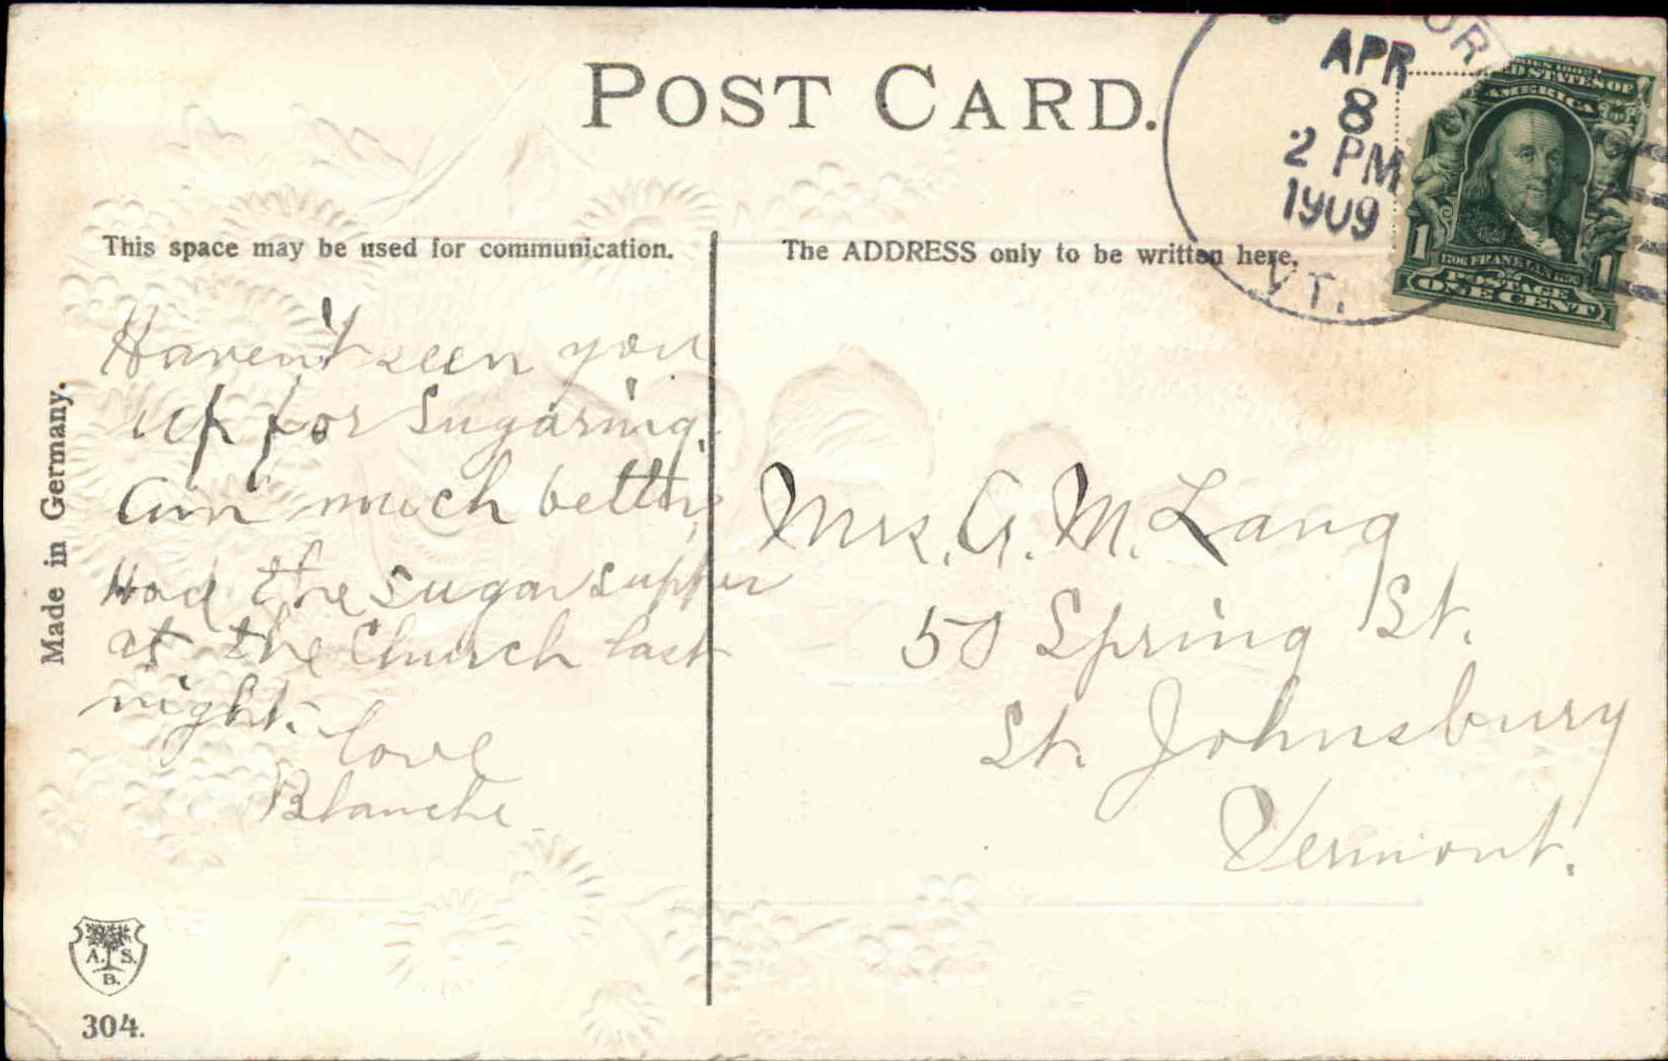 POST CARD.
APR
8
2 PM
1909
VT.
UNITED STATES OF
AMERICA
1 FRANKLIN 1
POSTAGE
ONE CENT
This space may be used for communication.
The ADDRESS only to be written here.
Haven't seen you
up for Sugaring.
Am much better,
Had the sugar supper
at the Church last
night.
Love
Blanche
Mrs. A. M. Lang
50 Spring St.
St. Johnsbury
Vermont.
Made in Germany.
A. S.
B.
304.